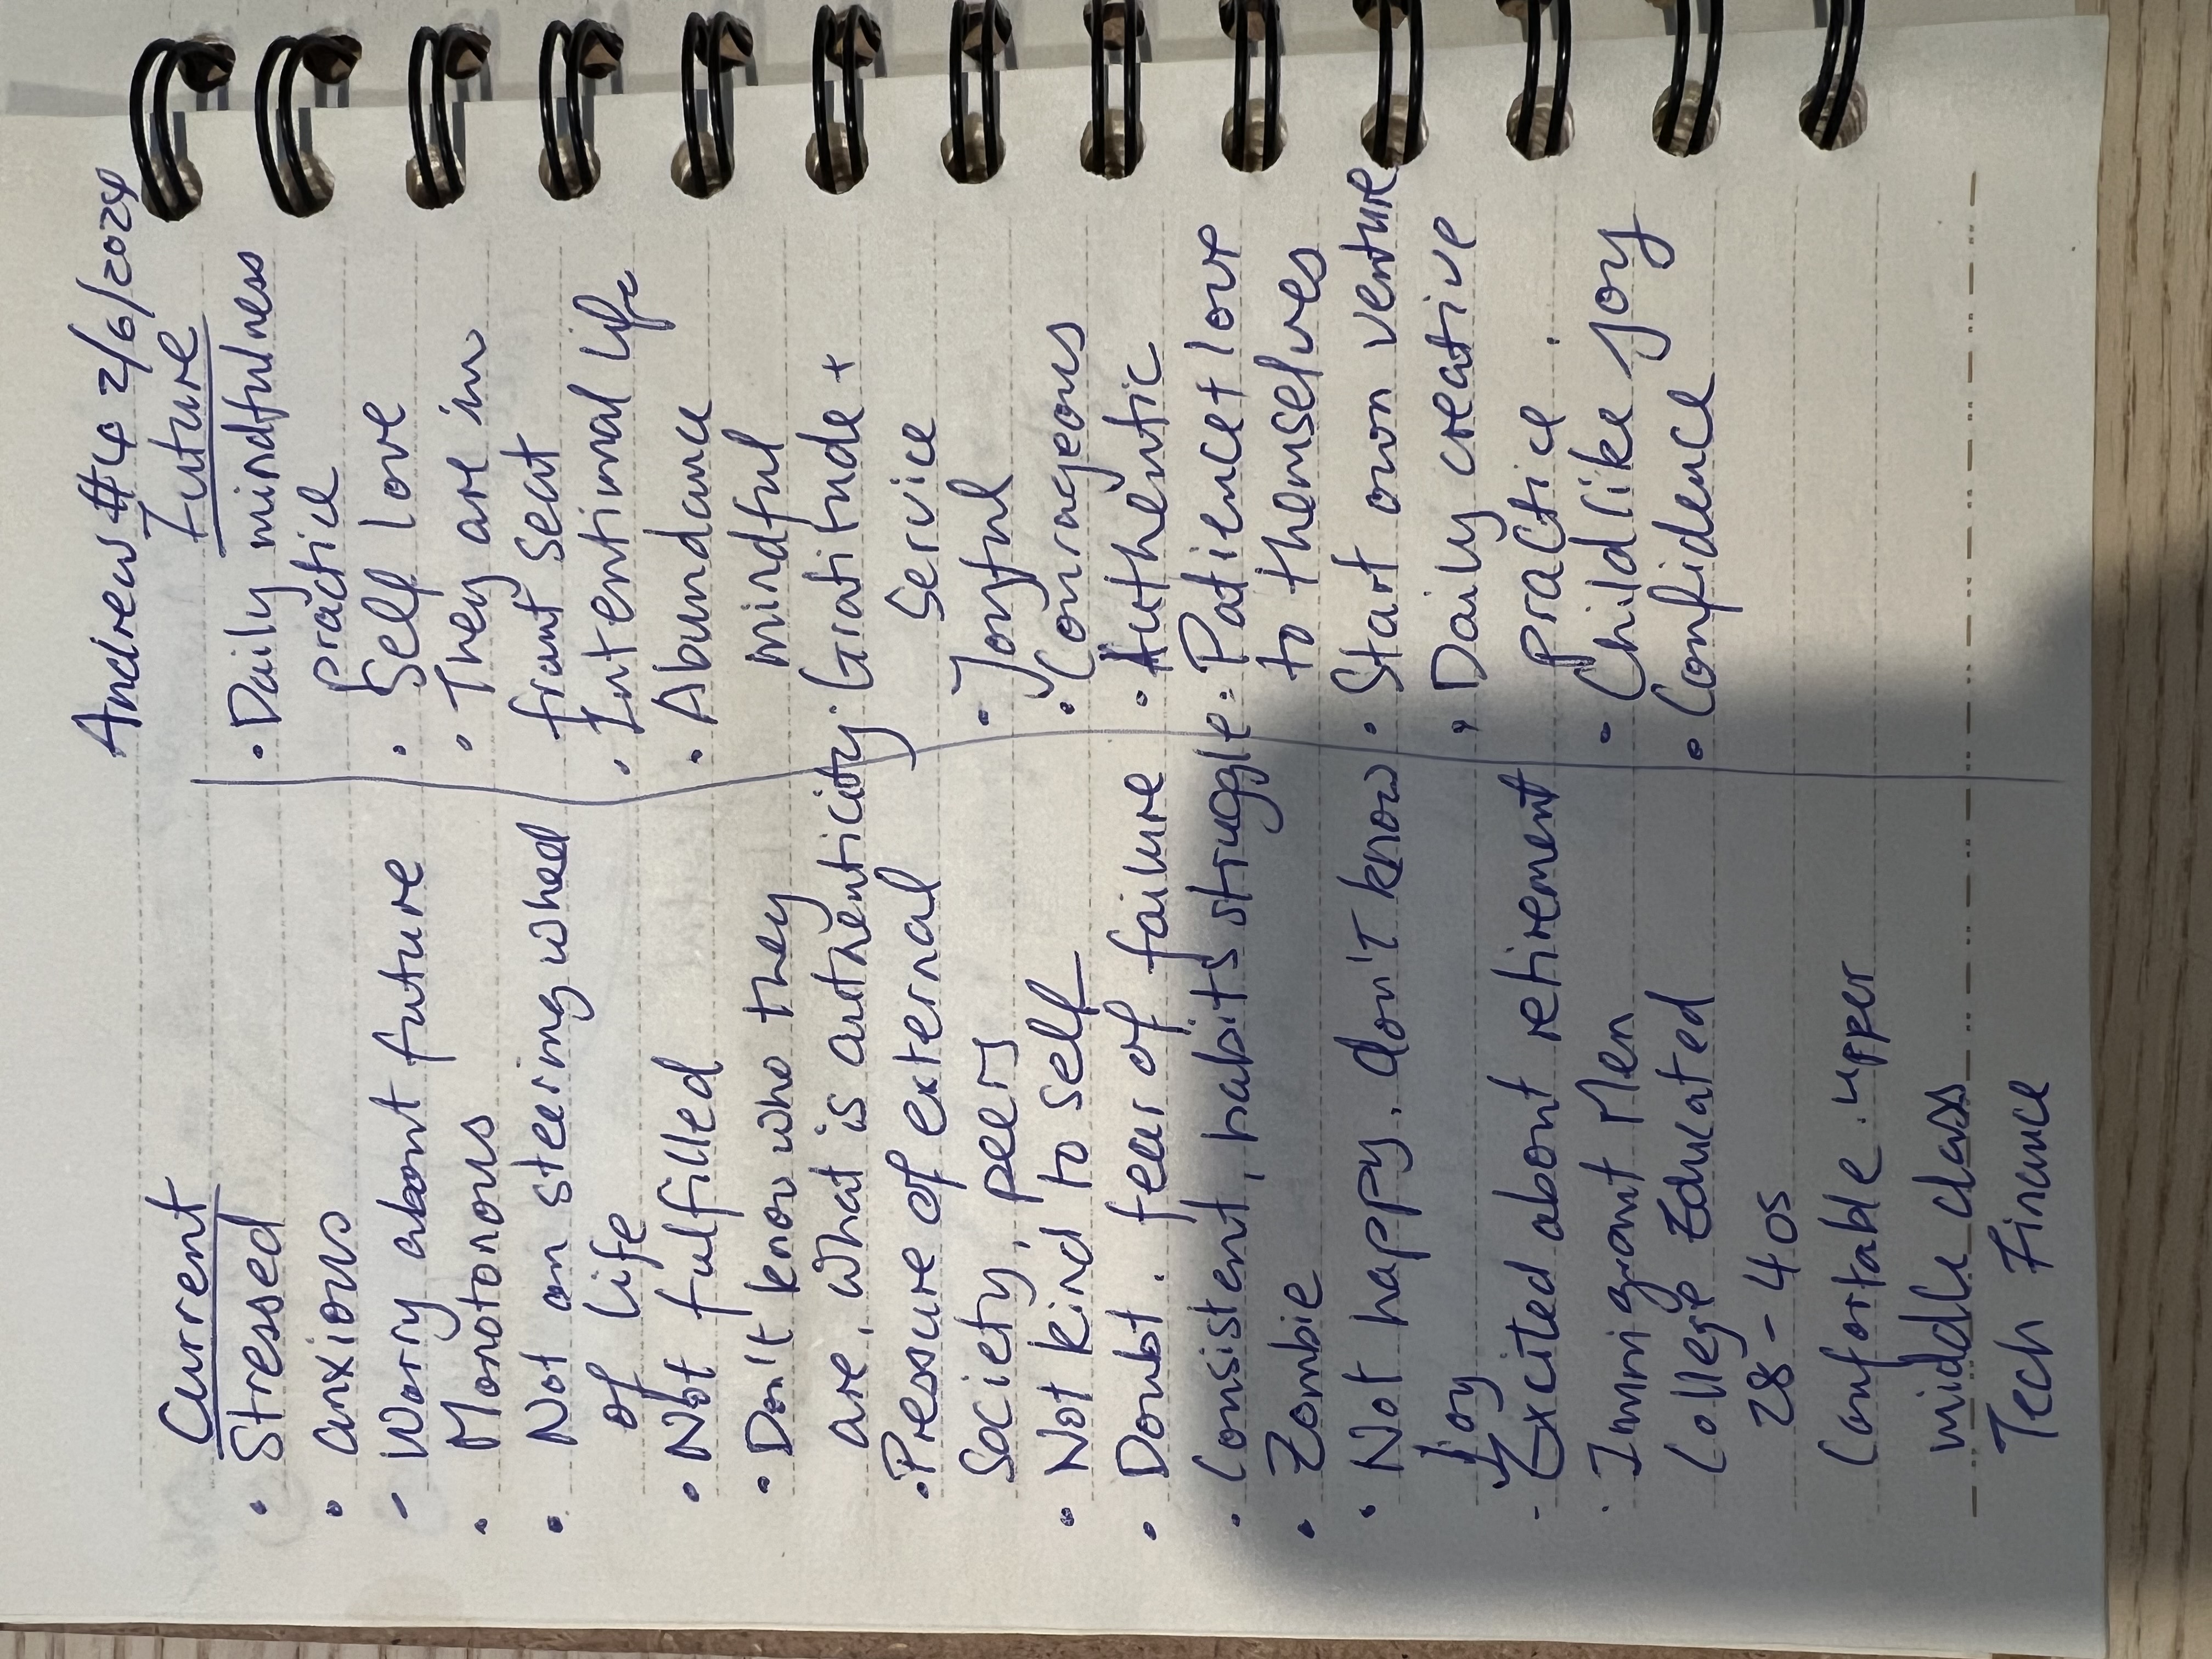 Andrew #4 2/6/2024
Current
• Stressed
• anxious
- Worry about future
• Monotonous
• Not on steering wheel
of life
• Not fulfilled
• Don't know who they
are, what is authenticity
• Pressure of external
Society, peers
• Not kind to self
• Doubt. fear of failure
• Consistent, habits struggle
• Zombie
• Not happy. don't know
Joy
- Excited about retirement
• Immigrant Men
College Educated
28-40s
Confortable. upper
middle class
Tech Finance
Future
• Daily mindfulness
practice
• Self love
• They are in
front seat
• Intentional life
• Abundance
mindful
• Gratitude +
Service
• Joyful
• Courageous
• Authentic
• Patience + love
to themselves
• Start own venture
• Daily creative
practice.
• Childlike joy
• Confidence